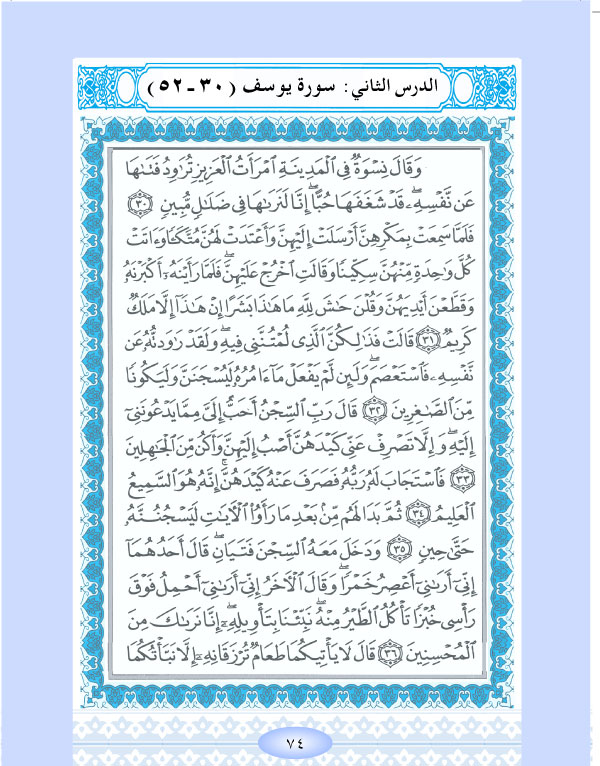 الدرس الثاني: سورة يوسف (٣٠ - ٥٢)
وَقَالَ نِسْوَةٌ فِي الْمَدِينَةِ امْرَأَتُ الْعَزِيزِ تُرَاوِدُ فَتَاهَا
عَن نَّفْسِهِ ۖ قَدْ شَغَفَهَا حُبًّا ۖ إِنَّا لَنَرَاهَا فِي ضَلَالٍ مُّبِينٍ ﴿٣٠﴾
فَلَمَّا سَمِعَتْ بِمَكْرِهِنَّ أَرْسَلَتْ إِلَيْهِنَّ وَأَعْتَدَتْ لَهُنَّ مُتَّكَـًٔا وَءَاتَتْ
كُلَّ وَاحِدَةٍ مِّنْهُنَّ سِكِّينًا وَقَالَتِ اخْرُجْ عَلَيْهِنَّ ۖ فَلَمَّا رَأَيْنَهُ أَكْبَرْنَهُ
وَقَطَّعْنَ أَيْدِيَهُنَّ وَقُلْنَ حَاشَ لِلَّهِ مَا هَـٰذَا بَشَرًا إِنْ هَـٰذَا إِلَّا مَلَكٌ
كَرِيمٌ ﴿٣١﴾ قَالَتْ فَذَٰلِكُنَّ الَّذِي لُمْتُنَّنِي فِيهِ ۖ وَلَقَدْ رَاوَدتُّهُ عَن
نَّفْسِهِ فَاسْتَعْصَمَ ۖ وَلَئِن لَّمْ يَفْعَلْ مَا ءَامُرُهُ لَيُسْجَنَنَّ وَلَيَكُونًا
مِّنَ الصَّاغِرِينَ ﴿٣٢﴾ قَالَ رَبِّ السِّجْنُ أَحَبُّ إِلَيَّ مِمَّا يَدْعُونَنِي
إِلَيْهِ ۖ وَإِلَّا تَصْرِفْ عَنِّي كَيْدَهُنَّ أَصْبُ إِلَيْهِنَّ وَأَكُن مِّنَ الْجَاهِلِينَ
﴿٣٣﴾ فَاسْتَجَابَ لَهُ رَبُّهُ فَصَرَفَ عَنْهُ كَيْدَهُنَّ ۚ إِنَّهُ هُوَ السَّمِيعُ
الْعَلِيمُ ﴿٣٤﴾ ثُمَّ بَدَا لَهُم مِّن بَعْدِ مَا رَأَوُا الْآيَاتِ لَيَسْجُنُنَّهُ
حَتَّىٰ حِينٍ ﴿٣٥﴾ وَدَخَلَ مَعَهُ السِّجْنَ فَتَيَانِ ۖ قَالَ أَحَدُهُمَا
إِنِّي أَرَانِي أَعْصِرُ خَمْرًا ۖ وَقَالَ الْآخَرُ إِنِّي أَرَانِي أَحْمِلُ فَوْقَ
رَأْسِي خُبْزًا تَأْكُلُ الطَّيْرُ مِنْهُ ۖ نَبِّئْنَا بِتَأْوِيلِهِ ۖ إِنَّا نَرَاكَ مِنَ
الْمُحْسِنِينَ ﴿٣٦﴾ قَالَ لَا يَأْتِيكُمَا طَعَامٌ تُرْزَقَانِهِ إِلَّا نَبَّأْتُكُمَا
٧٤